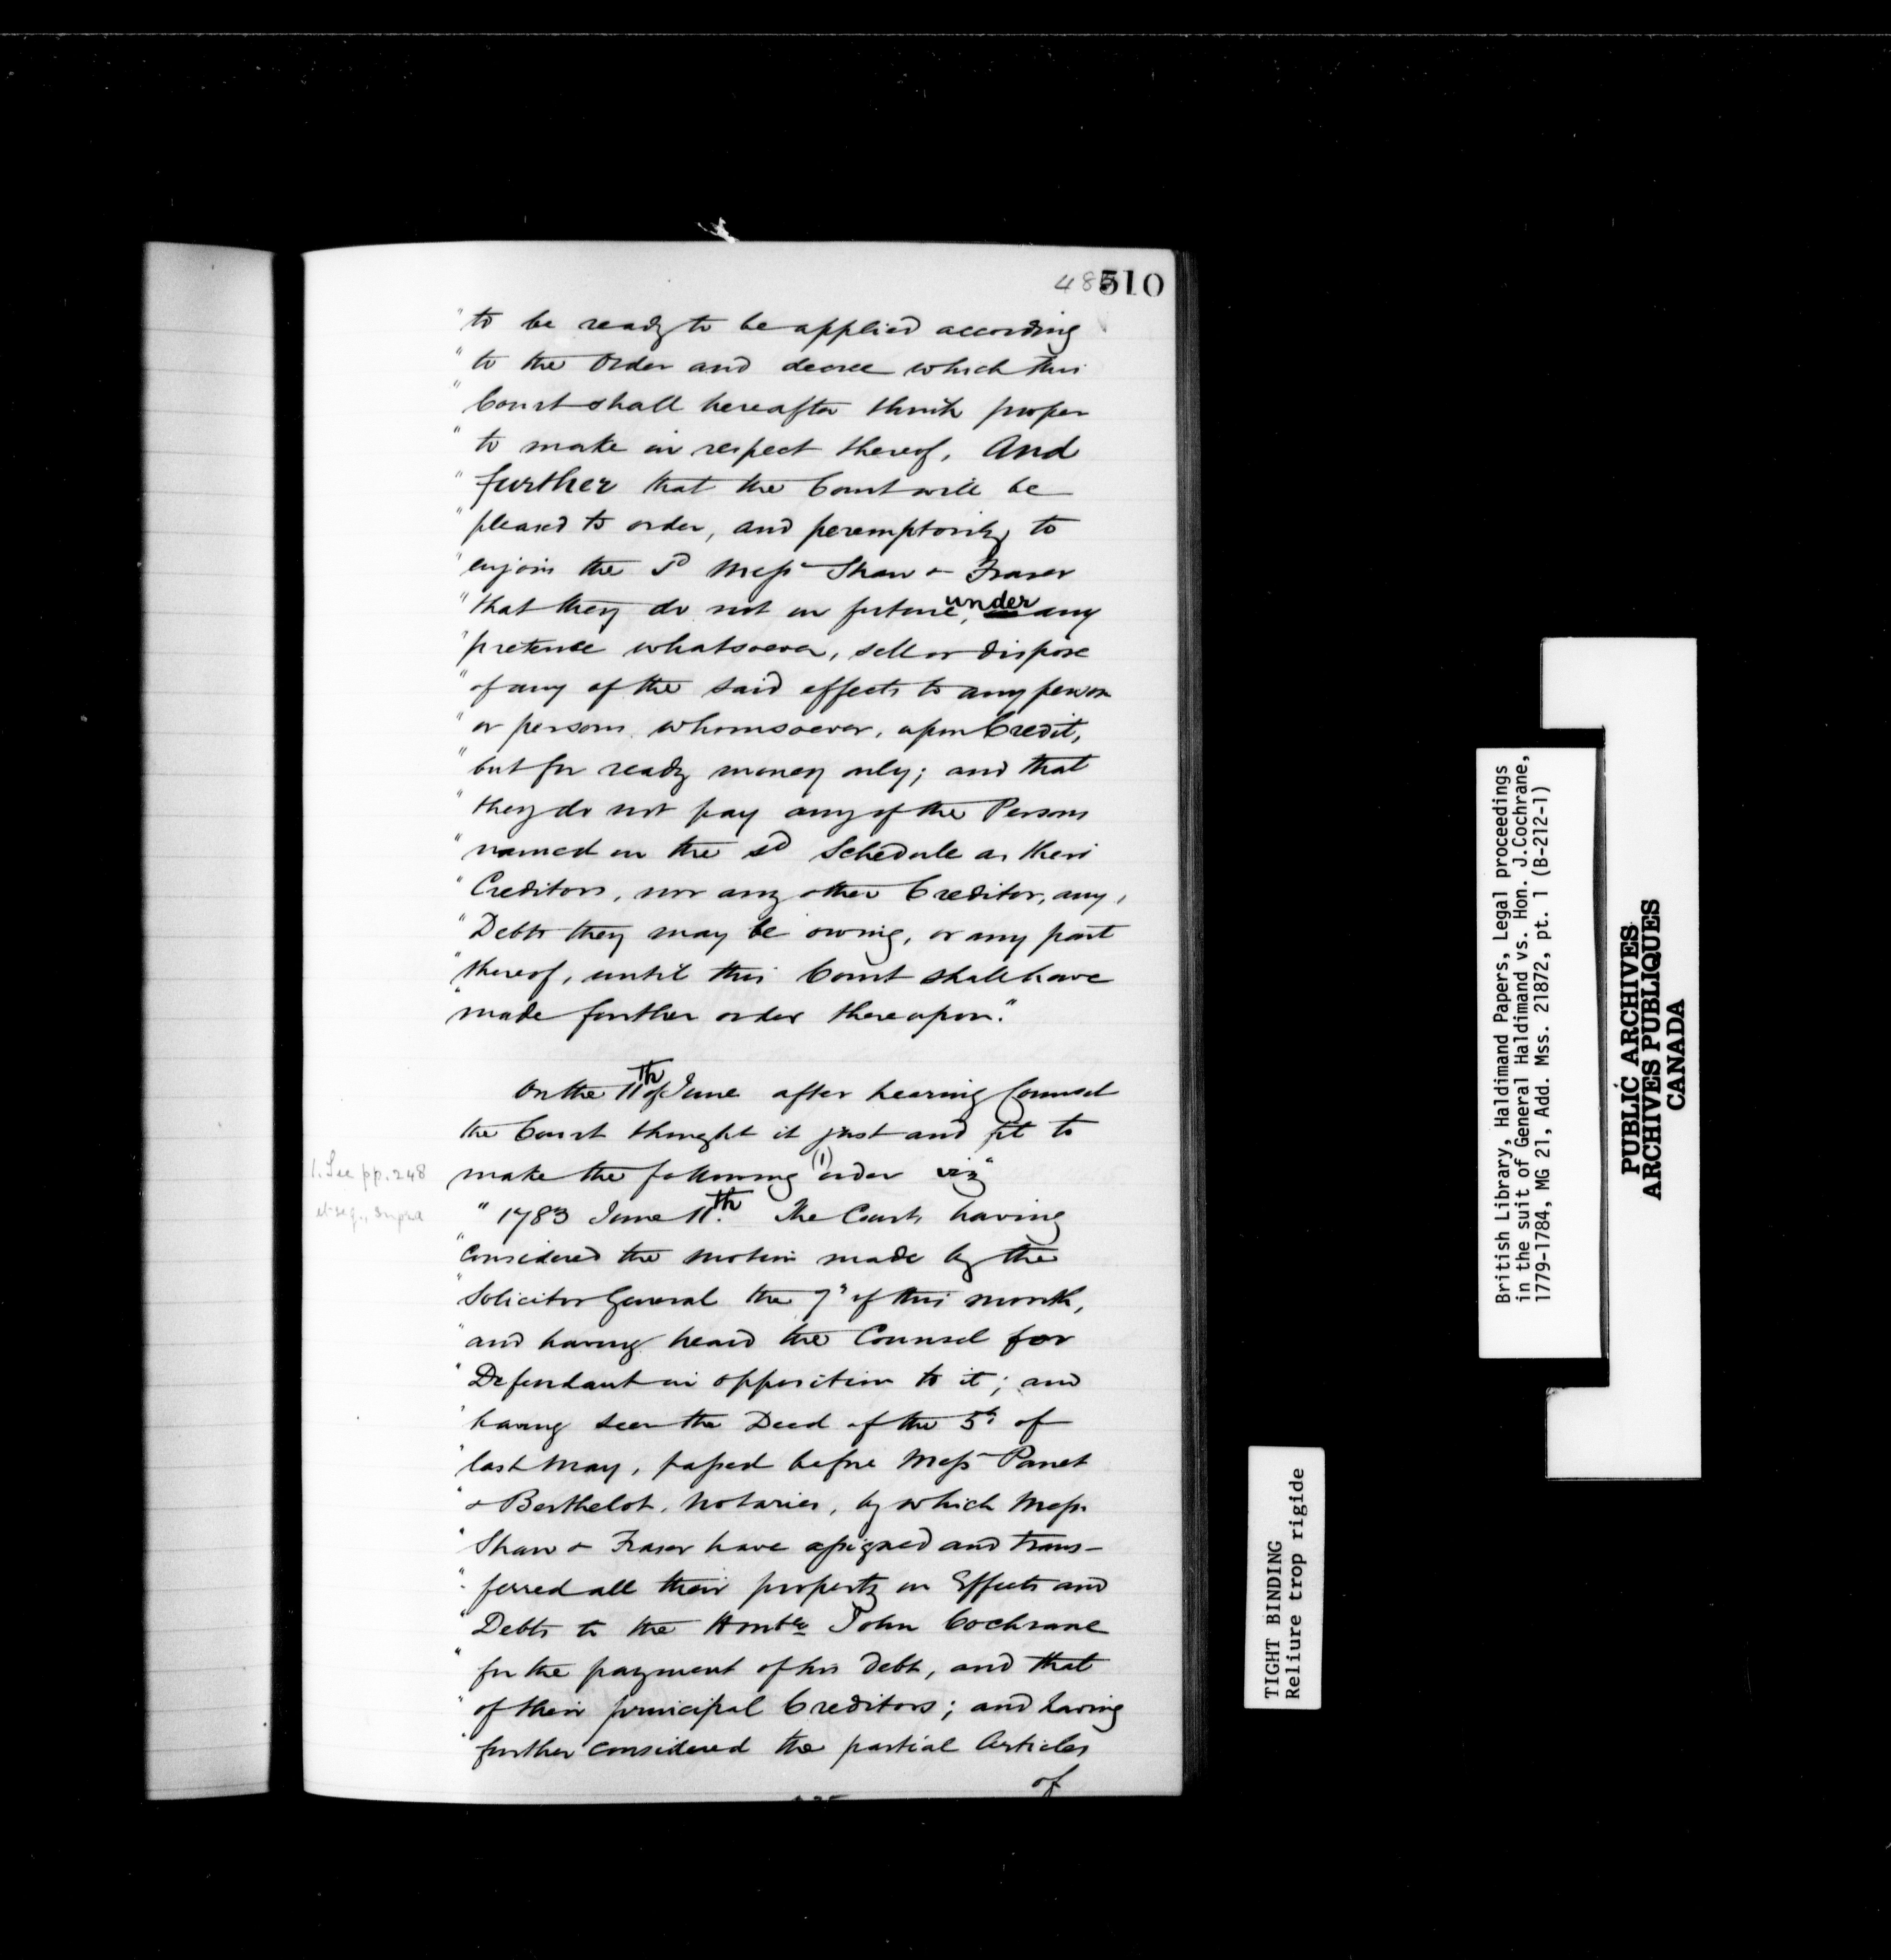 510
" to be ready to be applied according
" to the Order and decree which this
" Court shall hereafter think proper
" to make in respect thereof, And
" further that the Court will be
" pleased to order, and peremptorily to
" enjoin the Sd Messrs Shaw & Fraser
" that they do not in future, under any
" pretence whatsoever, sell or dispose
" of any of the said effects to any person
" or persons whomsoever, upon Credit,
" but for ready money only; and that
" they do not pay any of the Persons
" named in the sd Schedule as their
" Creditors, nor any other Creditor, any,
" Debts they may be owing, or any part
" thereof, until this Court shall have
" made further order thereupon."
On the 11th of June after hearing Counsel
the Court thought it just and fit to
make the following (1) order viz"
1. See pp. 248
et seq., supra
" 1783 June 11th. The Court, having
" considered the motion made by the
" Solicitor General the 7" of this month,
" and having heard the Counsel for
" Defendant in opposition to it; and
" having seen the Deed of the 5th of
" last May, passed before Messrs Panet
" & Berthelot, Notaries, by which Messrs
" Shaw & Fraser have assigned and trans-
" ferred all their property in Effects and
" Debts to the Honble John Cochrane
" for the payment of his debt, and that
" of their principal Creditors; and having
" further considered the partial Articles
of
British Library, Haldimand Papers, Legal proceedings
in the suit of General Haldimand vs. Hon. J.Cochrane,
1779-1784, MG 21, Add. Mss. 21872, pt. 1 (B-212-1)
PUBLIC ARCHIVES
ARCHIVES PUBLIQUES
CANADA
TIGHT BINDING
Reliure trop rigide